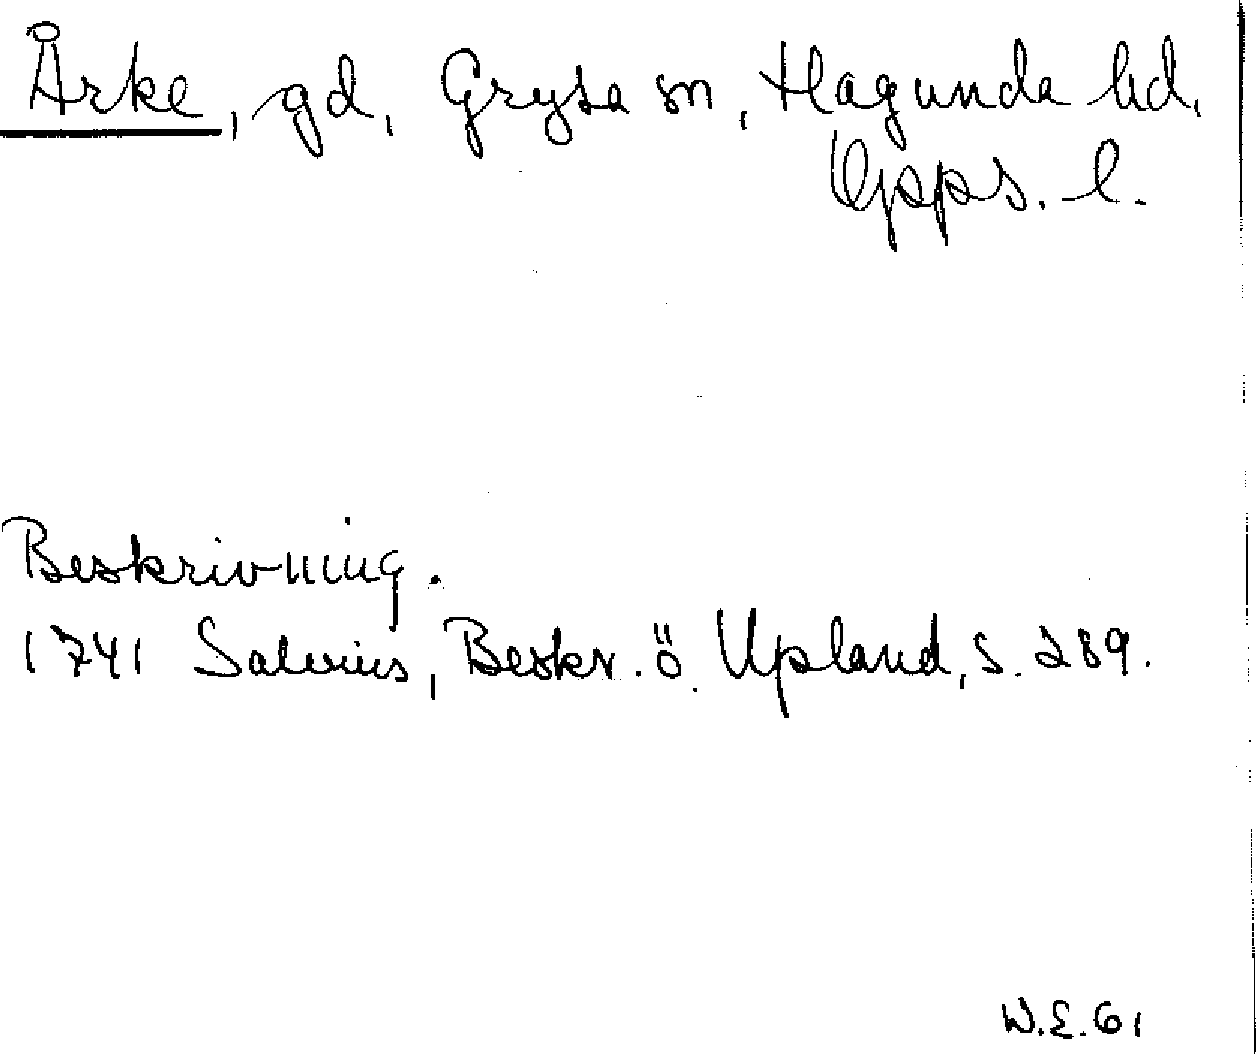 Årke, gd, Gryta sn, Hagunda hd,
Upps. l.
Beskrivning.
1741 Salvius, Beskr. ö. Upland, s. 289.
W.E. 61